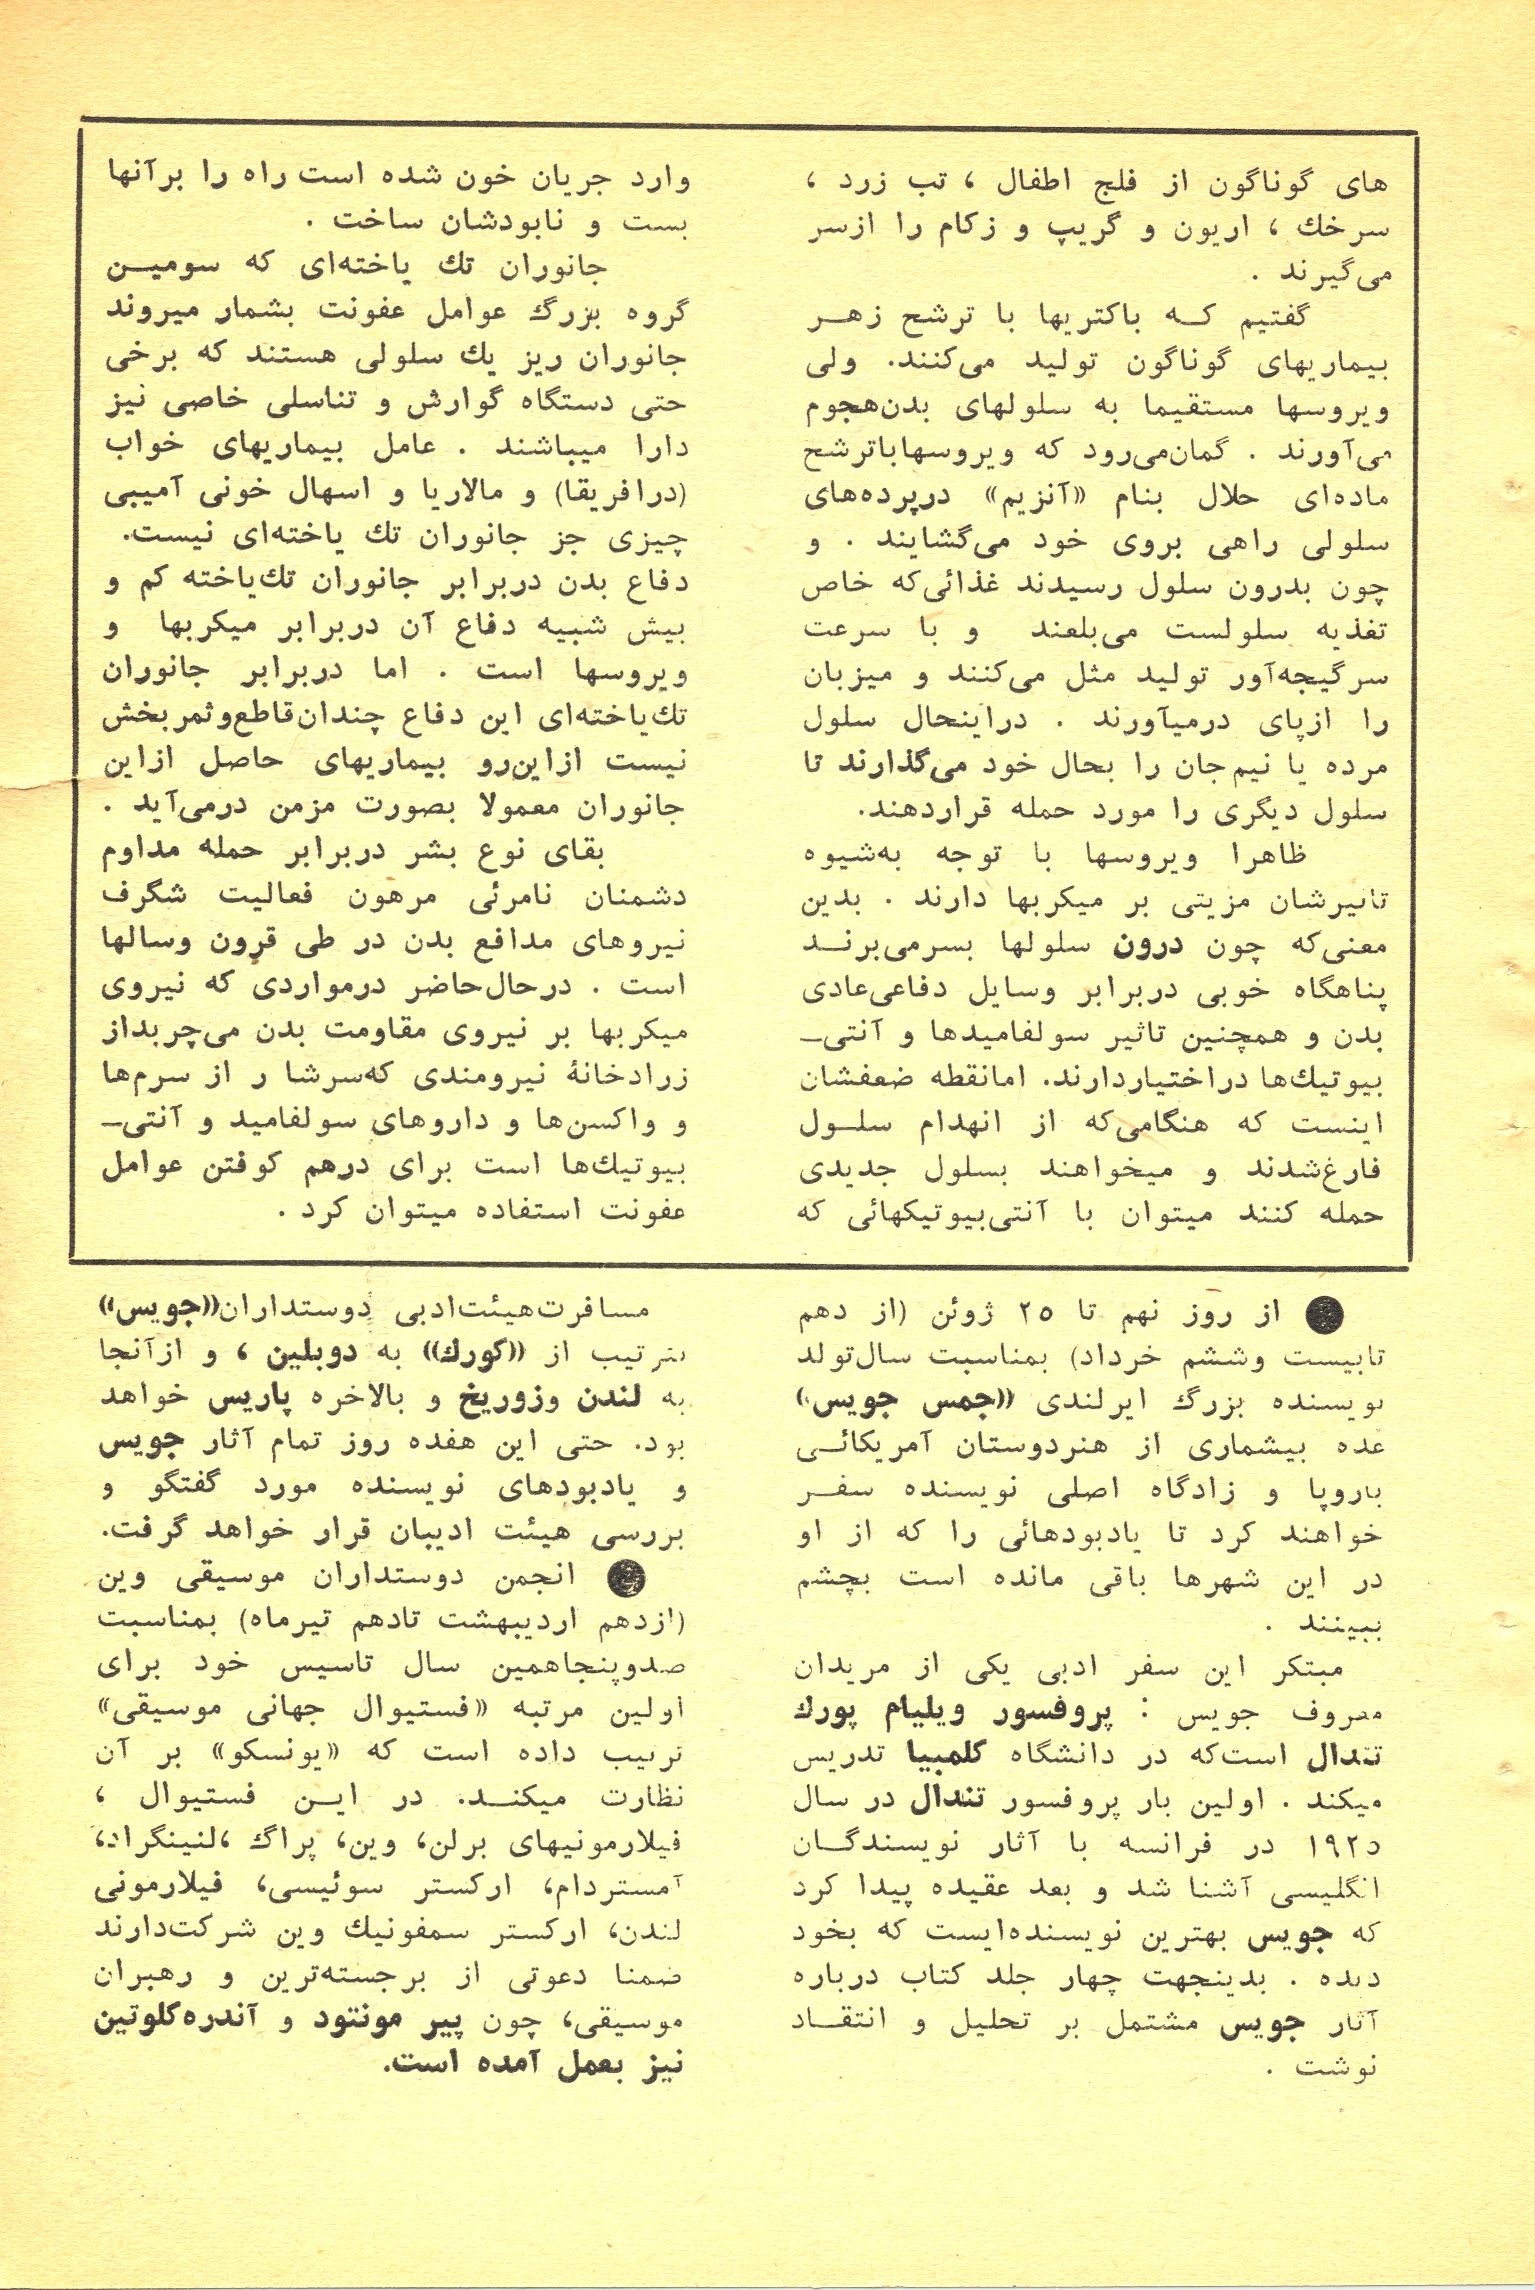 های گوناگون از فلج اطفال ، تب زرد ،
سرخك ، اریون و گریپ و زکام را ازسر
می‌گیرند .
گفتیم کـه باکتریها با ترشح زهـر
بیماریهای گوناگون تولید می‌کنند. ولی
ویروسها مستقیما به سلولهای بدن‌هجوم
می‌آورند . گمان‌می‌رود که ویروسهاباترشح
ماده‌ای حلال بنام «آنزیم» درپرده‌های
سلولی راهی بروی خود می‌گشایند . و
چون بدرون سلول رسیدند غذائی‌که خاص
تغذیه سلولست می‌بلعند و با سرعت
سرگیجه‌آور تولید مثل می‌کنند و میزبان
را ازپای درمیآورند . دراینحال سلول
مرده یا نیم‌جان را بحال خود می‌گذارند تا
سلول دیگری را مورد حمله قراردهند.
ظاهرا ویروسها با توجه به‌شیوه
تاثیرشان مزیتی بر میکربها دارند . بدین
معنی‌که چون درون سلولها بسرمی‌برنـد
پناهگاه خوبی دربرابر وسایل دفاعی‌عادی
بدن و همچنین تاثیر سولفامیدها و آنتی‌ـ
بیوتیك‌ها دراختیاردارند. امانقطه ضعفشان
اینست که هنگامی‌که از انهدام سلـول
فارغ‌شدند و میخواهند بسلول جدیدی
حمله کنند میتوان با آنتی‌بیوتیکهائی که
وارد جریان خون شده است راه را برآنها
بست و نابودشان ساخت .
جانوران تك یاخته‌ای که سومیـن
گروه بزرگ عوامل عفونت بشمار میروند
جانوران ریز یك سلولی هستند که برخی
حتی دستگاه گوارش و تناسلی خاصی نیز
دارا میباشند . عامل بیماریهای خواب
(درافریقا) و مالاریا و اسهال خونی آمیبی
چیزی جز جانوران تك یاخته‌ای نیست.
دفاع بدن دربرابر جانوران تك‌یاخته کم و
بیش شبیه دفاع آن دربرابر میکربها و
ویروسها است . اما دربرابر جانوران
تك‌یاخته‌ای این دفاع چندان‌قاطع‌وثمربخش
نیست ازاین‌رو بیماریهای حاصل ازاین
جانوران معمولا بصورت مزمن درمی‌آید .
بقای نوع بشر دربرابر حمله مداوم
دشمنان نامرئی مرهون فعالیت شگرف
نیروهای مدافع بدن در طی قرون وسالها
است . درحال‌حاضر درمواردی که نیروی
میکربها بر نیروی مقاومت بدن می‌چربداز
زرادخانهٔ نیرومندی که‌سرشا ر از سرم‌ها
و واکسن‌ها و داروهای سولفامید و آنتی‌ـ
بیوتیك‌ها است برای درهم کوفتن عوامل
عفونت استفاده میتوان کرد .
از روز نهم تا ۲۵ ژوئن (از دهم
تابیست وششم خرداد) بمناسبت سال‌تولد
نویسنده بزرگ ایرلندی ((جمس جویس))
عده بیشماری از هنردوستان آمریکائـی
باروپا و زادگاه اصلی نویسنده سفـر
خواهند کرد تا یادبودهائی را که از او
در این شهرها باقی مانده است بچشم
ببینند .
مبتکر این سفر ادبی یکی از مریدان
معروف جویس : پروفسور ویلیام یورك
تندال است‌که در دانشگاه کلمبیا تدریس
میکند . اولین بار پروفسور تندال در سال
۱۹۲۵ در فرانسه با آثار نویسندگـان
انگلیسی آشنا شد و بعد عقیده پیدا کرد
که جویس بهترین نویسنده‌ایست که بخود
دیده . بدینجهت چهار جلد کتاب درباره
آثار جویس مشتمل بر تحلیل و انتقـاد
نوشت .
مسافرت‌هیئت‌ادبی دوستداران((جویس))
بترتیب از ((کورك)) به دوبلین ، و ازآنجا
به لندن وزوریخ و بالاخره پاریس خواهد
بود. حتی این هفده روز تمام آثار جویس
و یادبودهای نویسنده مورد گفتگو و
بررسی هیئت ادیبان قرار خواهد گرفت.
انجمن دوستداران موسیقی وین
(ازدهم اردیبهشت تادهم تیرماه) بمناسبت
صدوپنجاهمین سال تاسیس خود برای
اولین مرتبه «فستیوال جهانی موسیقی»
ترتیب داده است که «یونسکو» بر آن
نظارت میکنـد. در ایـن فستیوال ،
فیلارمونیهای برلن، وین، پراگ ،لنینگراد،
آمستردام، ارکستر سوئیسی، فیلارمونی
لندن، ارکستر سمفونیك وین شرکت‌دارند
ضمنا دعوتی از برجسته‌ترین و رهبران
موسیقی، چون پیر مونتود و آندره‌کلوتین
نیز بعمل آمده است.